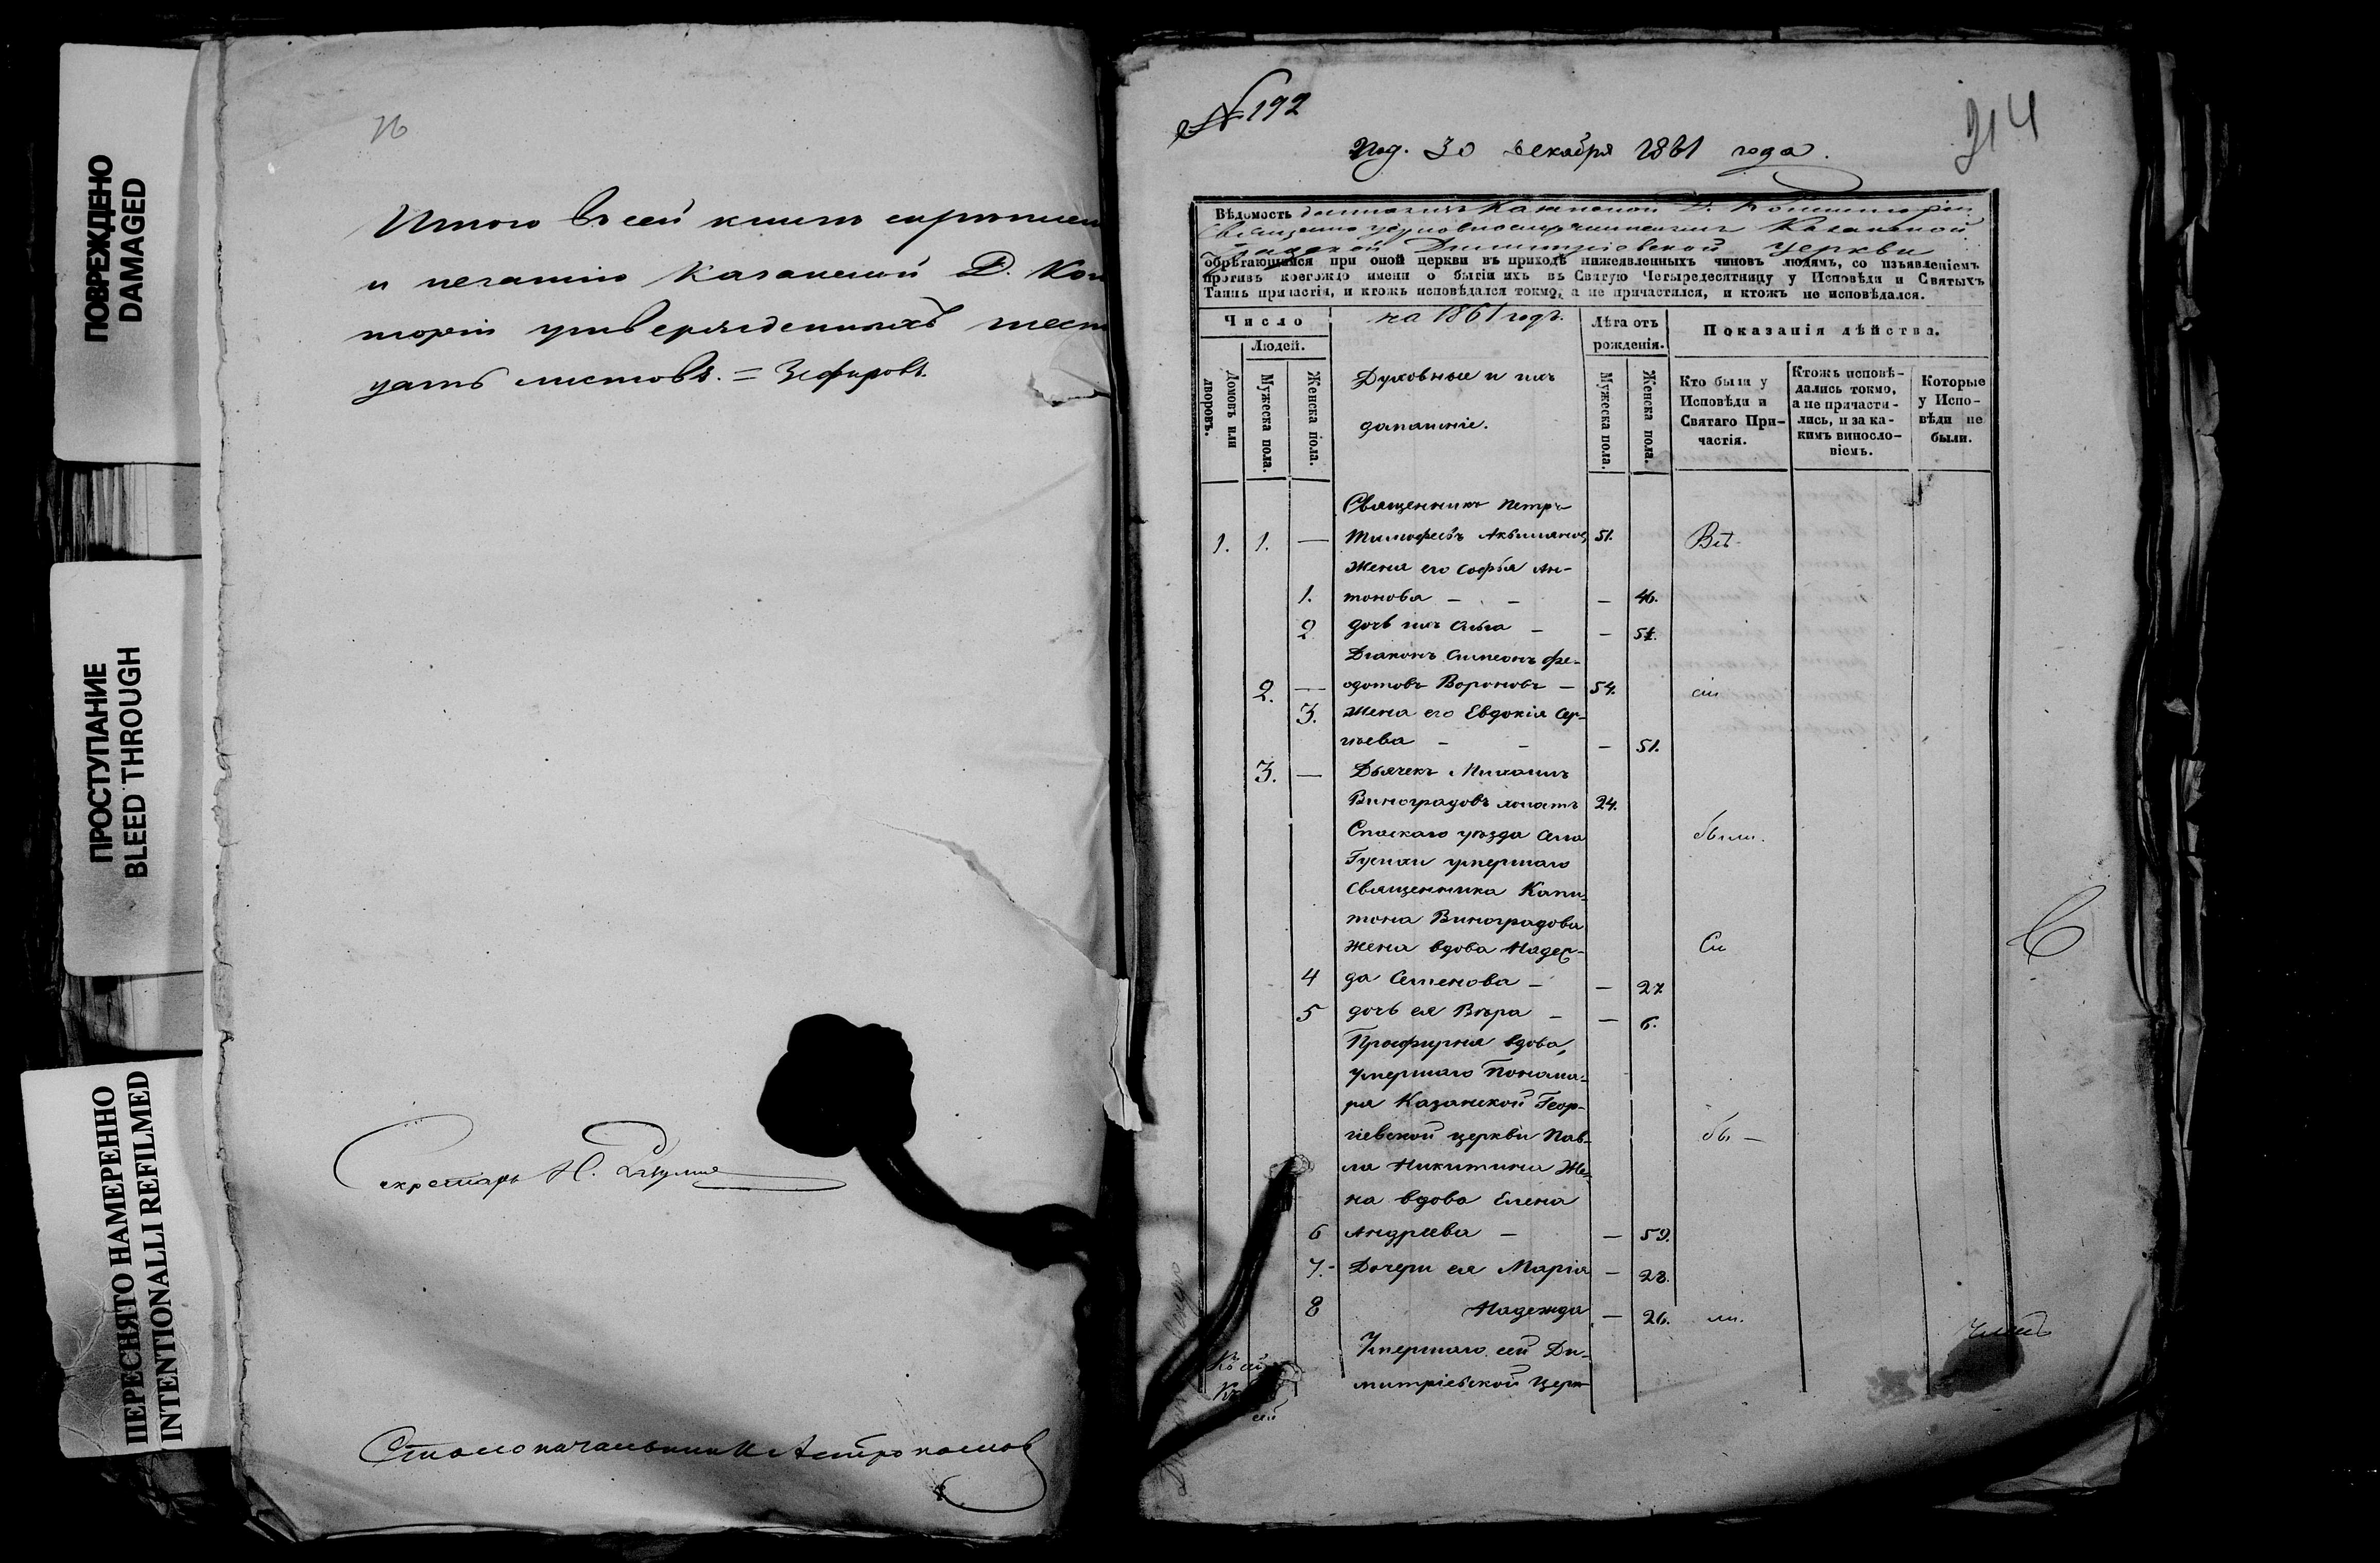 ПОВРЕЖДЕНО
DAMAGED
ПРОСТУПАНИЕ
BLEED THROUGH
ПЕРЕСНЯТО НАМЕРЕННО
INTENTIONALLI REFILMED
Итого въ сей книгѣ
и печатію Казанской Д. Кон
торіи утвержденныхъ шест
цать листовъ. = Зефировъ.
Секретарь Н.
Столоначальникъ
№ 192
Под. 30 декабря 1861 года.
314
Вѣдомость Казанской Д. Консисторіи
Казанской
Димитріевской церкви
обрѣтающимся при оной церкви въ приходѣ нижеявленныхъ чиновъ людямъ, со изъявленіемъ
противъ коегождо имени о бытіи ихъ въ Святую Четыредесятницу у Исповѣди и Святыхъ
Таинъ причастія, и ктожъ исповѣдался токмо, а не причастился, и ктожъ не исповѣдался.
Число
на 1861 годъ.
Лѣта отъ
рожденія.
Показанія дѣйства.
Людей.
Домовъ или
дворовъ.
Мужеска пола.
Женска пола.
Духовные и ихъ
домашніе.
Мужеска пола.
Женска пола.
Кто были у
Исповѣди и
Святаго При-
частія.
Ктожъ исповѣ-
дались токмо,
а не причасти-
лись, и за ка-
кимъ винословіемъ.
Которые
у Испо-
вѣди не
были.
Священникъ Петръ
1. 1. — Тимофеевъ 51. Всѣ
Жена его Софья Ан-
1. тонова — — — 46.
2. дочь ихъ —
Діаконъ Симеонъ Фе-
2. — одотовъ Вороновъ — 54. сіи
3. Жена его Евдокія Сер-
гѣева — — — 51.
3. — Дьячекъ Михаилъ
Виноградовъ холостъ 24.
Спаскаго уѣзда села
были.
умершаго
священника Капи-
тона Виноградова
жена вдова Надеж-
Си
4 да Семенова — — 27
5 дочь ея Вѣра — — 6.
Просфирня вдова,
умершаго Понома-
ря Казанской Геор-
гіевской церкви Пав-
бы —
ла Никитина Же-
на вдова Елена
6 Андреева — — 59.
7. Дочери ея Марія — 28.
8 Надежда — 26. ли.
Умершаго сей Ди-
митріевской Церк-